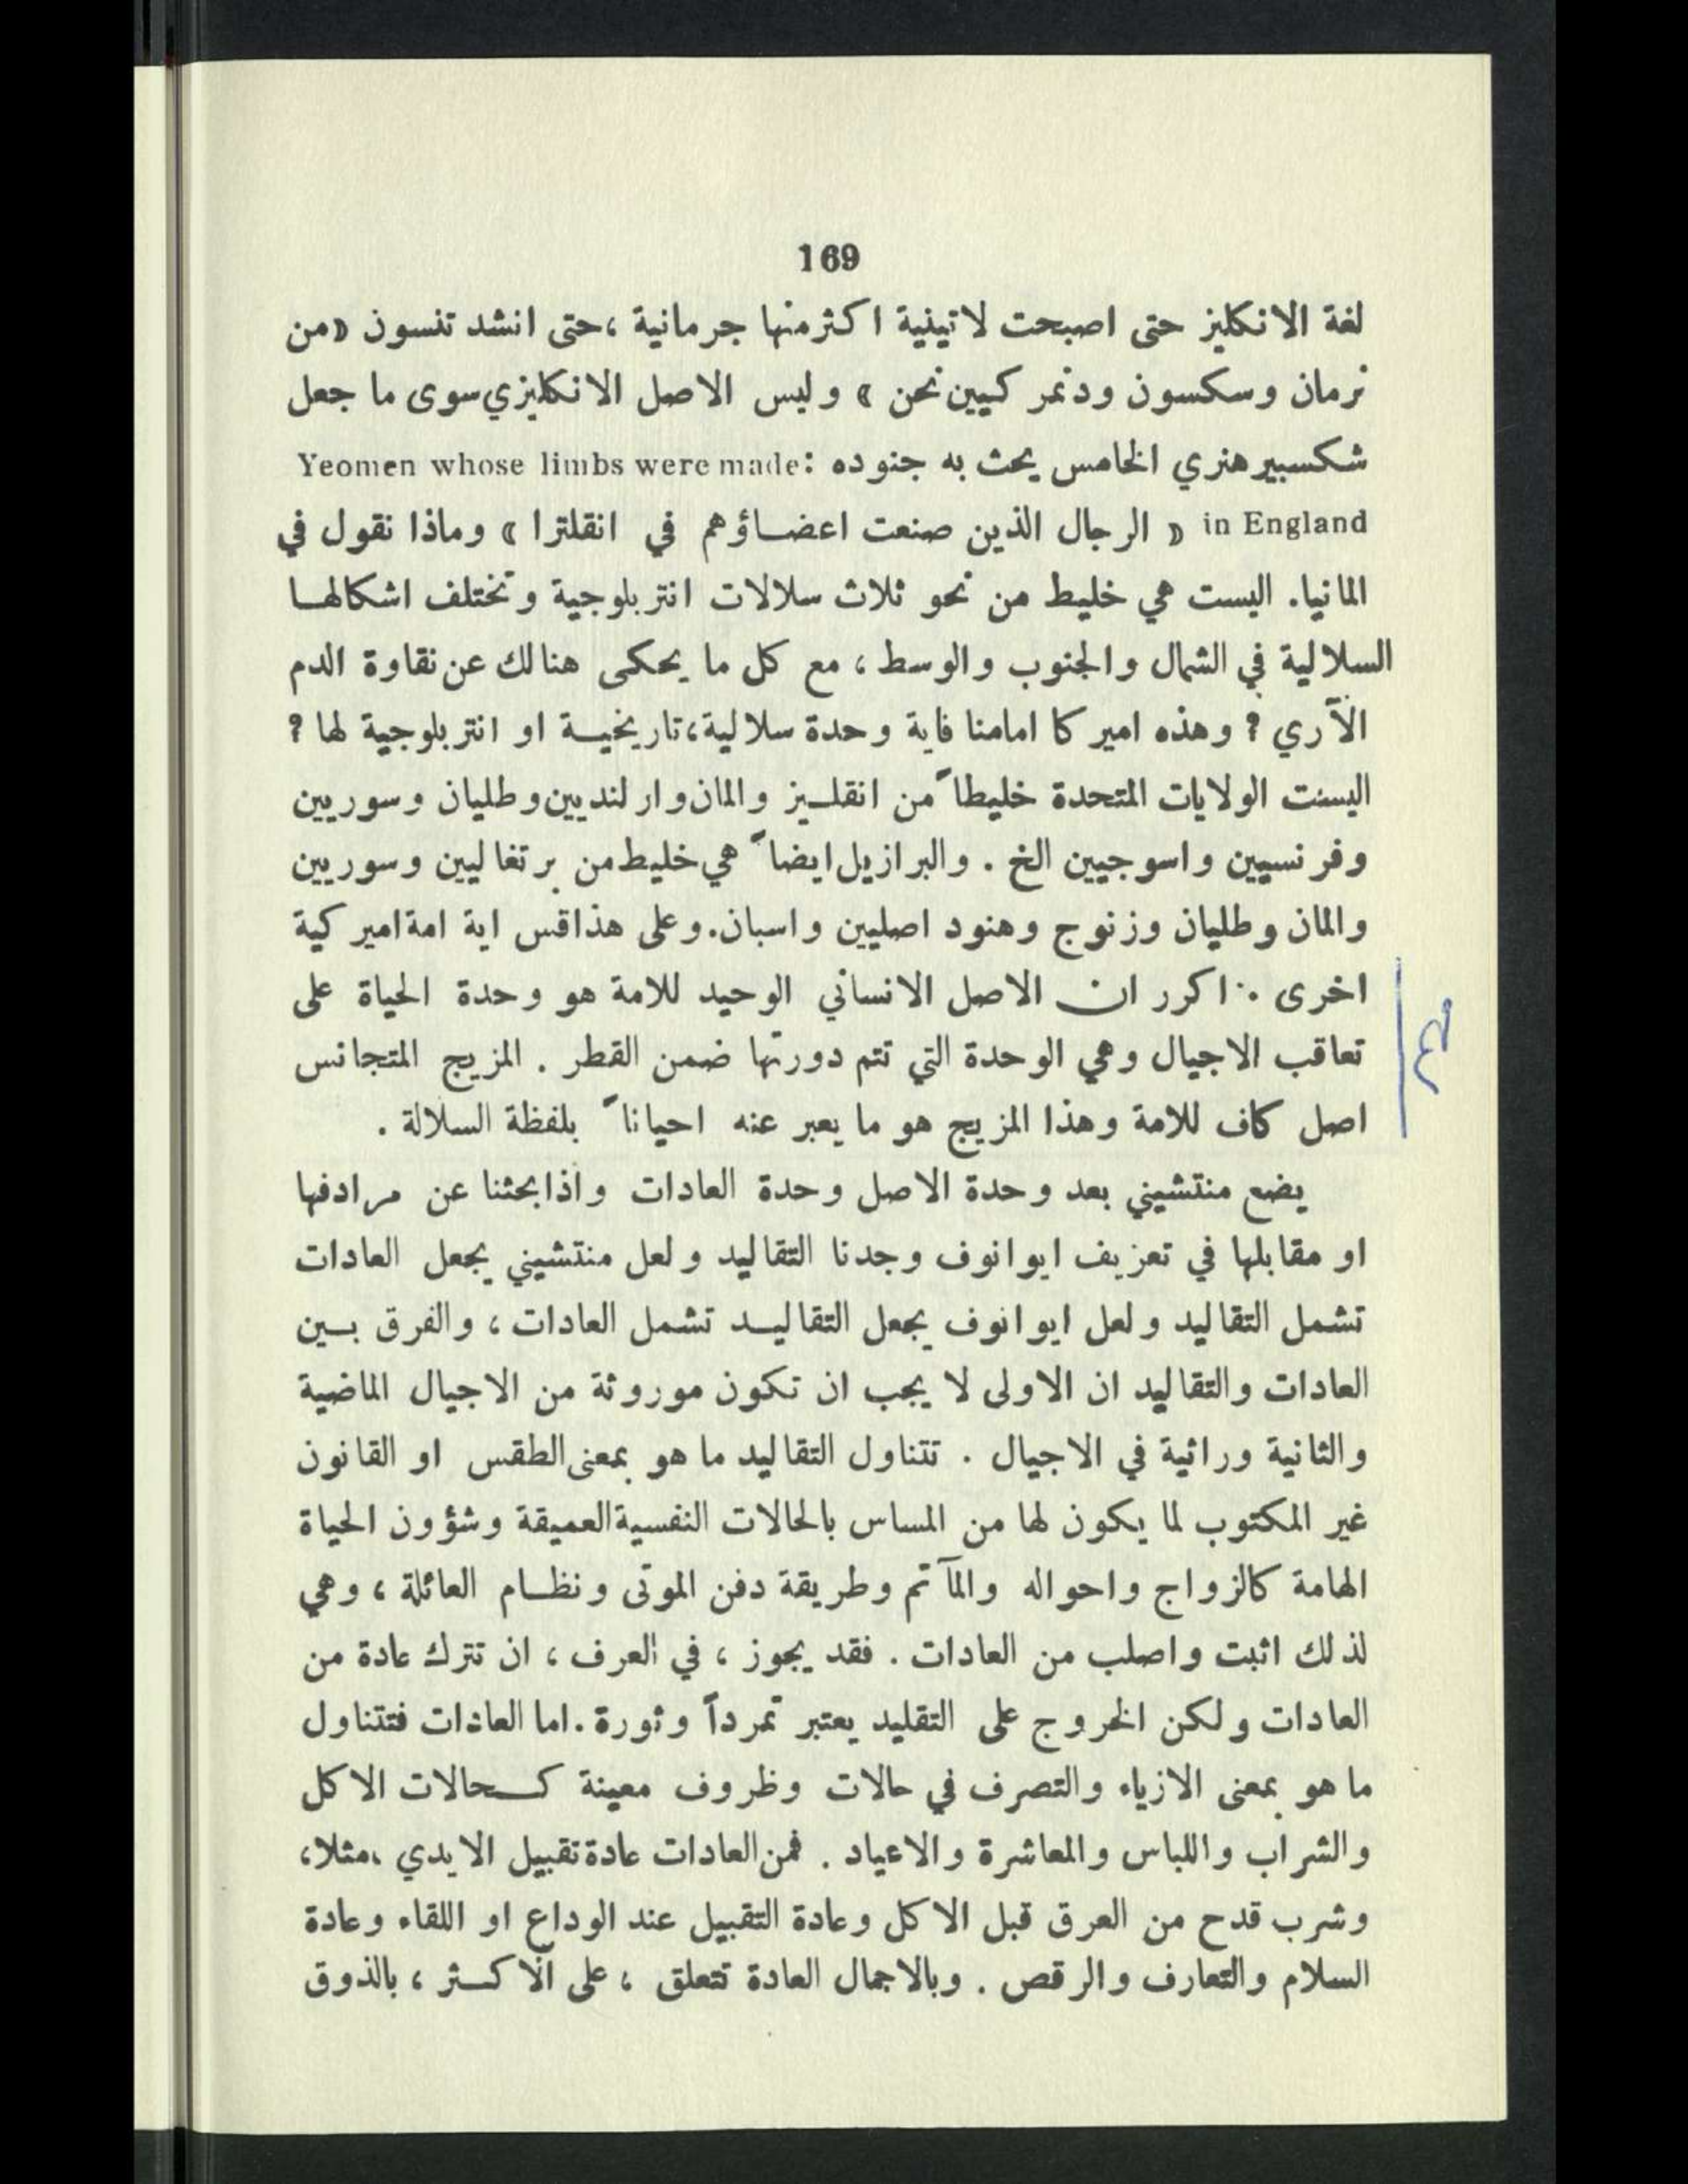 169
لغة الانكليز حتى اصبحت لاتينية اكثر منها جرمانية ، حتى انشد تنسون «من
نرمان وسكسون ودنمر كيين نحن » وليس الاصل الانكليزي سوى ما جعل
شكسبير هنري الخامس يحث به جنوده : Yeomen whose limbs were made
in England « الرجال الذين صنعت اعضــاؤهم في انقلترا » وماذا نقول في
المانيا. اليست هي خليط من نحو ثلاث سلالات انتربلوجية وتختلف اشكالهــا
السلالية في الشمال والجنوب والوسط ، مع كل ما يحكى هنالك عن نقاوة الدم
الآري ? وهذه اميركا امامنا فاية وحدة سلالية، تاريخيــة او انتربلوجية لها ?
اليست الولايات المتحدة خليطاً من انقلــيز والمان وارلنديين وطليان وسوريين
وفرنسيين واسوجيين الخ . والبرازيل ايضاً هي خليط من برتغاليين وسوريين
والمان وطليان وزنوج وهنود اصليين واسبان. وعلى هذا قس اية امة اميركية
اخرى . اكرر ان الاصل الانساني الوحيد للامة هو وحدة الحياة على
تعاقب الاجيال وهي الوحدة التي تتم دورتها ضمن القطر . المزيج المتجانس
اصل كاف للامة وهذا المزيج هو ما يعبر عنه احياناً بلفظة السلالة .
يضع منتشيني بعد وحدة الاصل وحدة العادات واذا بحثنا عن مرادفها
او مقابلها في تعريف ايوانوف وجدنا التقاليد ولعل منتشيني يجعل العادات
تشمل التقاليد ولعل ايوانوف يجعل التقاليــد تشمل العادات ، والفرق بــين
العادات والتقاليد ان الاولى لا يجب ان تكون موروثة من الاجيال الماضية
والثانية وراثية في الاجيال . تتناول التقاليد ما هو بمعنى الطقس او القانون
غير المكتوب لما يكون لها من المساس بالحالات النفسية العميقة وشؤون الحياة
الهامة كالزواج واحواله والمآتم وطريقة دفن الموتى ونظــام العائلة ، وهي
لذلك اثبت واصلب من العادات . فقد يجوز ، في العرف ، ان تترك عادة من
العادات ولكن الخروج على التقليد يعتبر تمرداً وثورة . اما العادات فتتناول
ما هو بمعنى الازياء والتصرف في حالات وظروف معينة كــحالات الاكل
والشراب واللباس والمعاشرة والاعياد . فمن العادات عادة تقبيل الايدي ، مثلا،
وشرب قدح من العرق قبل الاكل وعادة التقبيل عند الوداع او اللقاء وعادة
السلام والتعارف والرقص . وبالاجمال العادة تتعلق ، على الاكــثر ، بالذوق